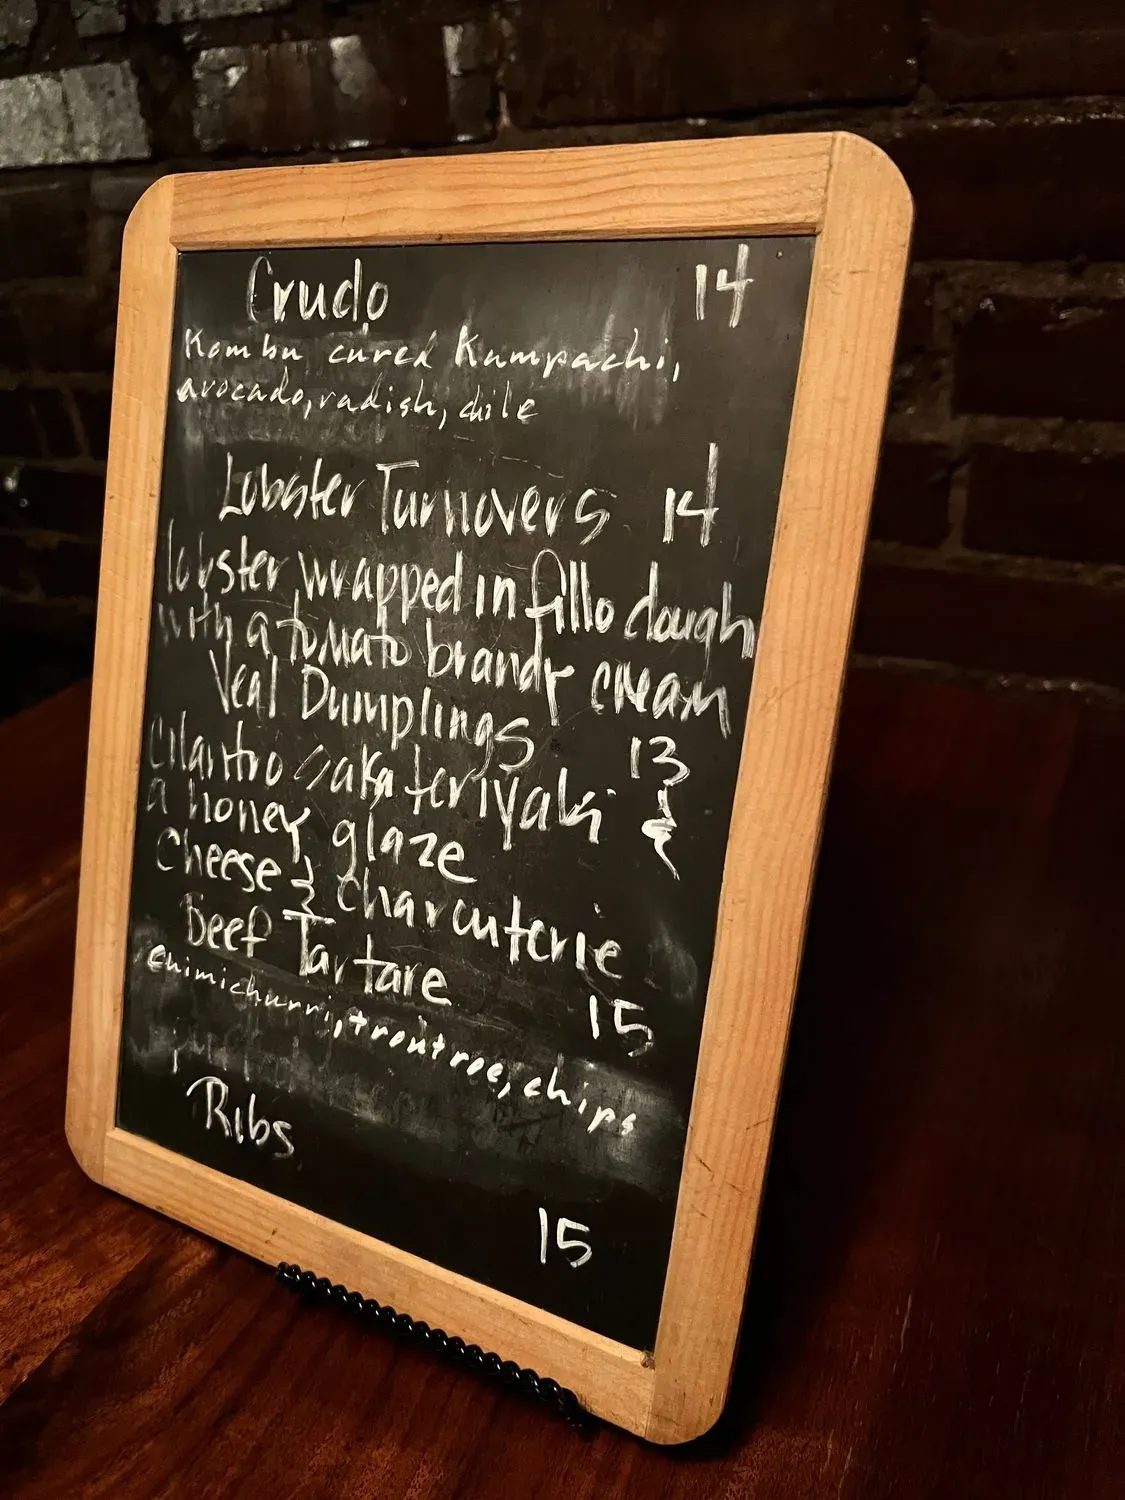 Crudo 14
Kombu cured Kampachi,
avocado, radish, chile
Lobster Turnovers 14
lobster wrapped in fillo dough
with a tomato brandy cream
Veal Dumplings 13
Cilantro saka teriyaki &
a honey glaze
Cheese & Charcuterie
Beef Tartare 15
chimichurri, trout roe, chips
Ribs
15